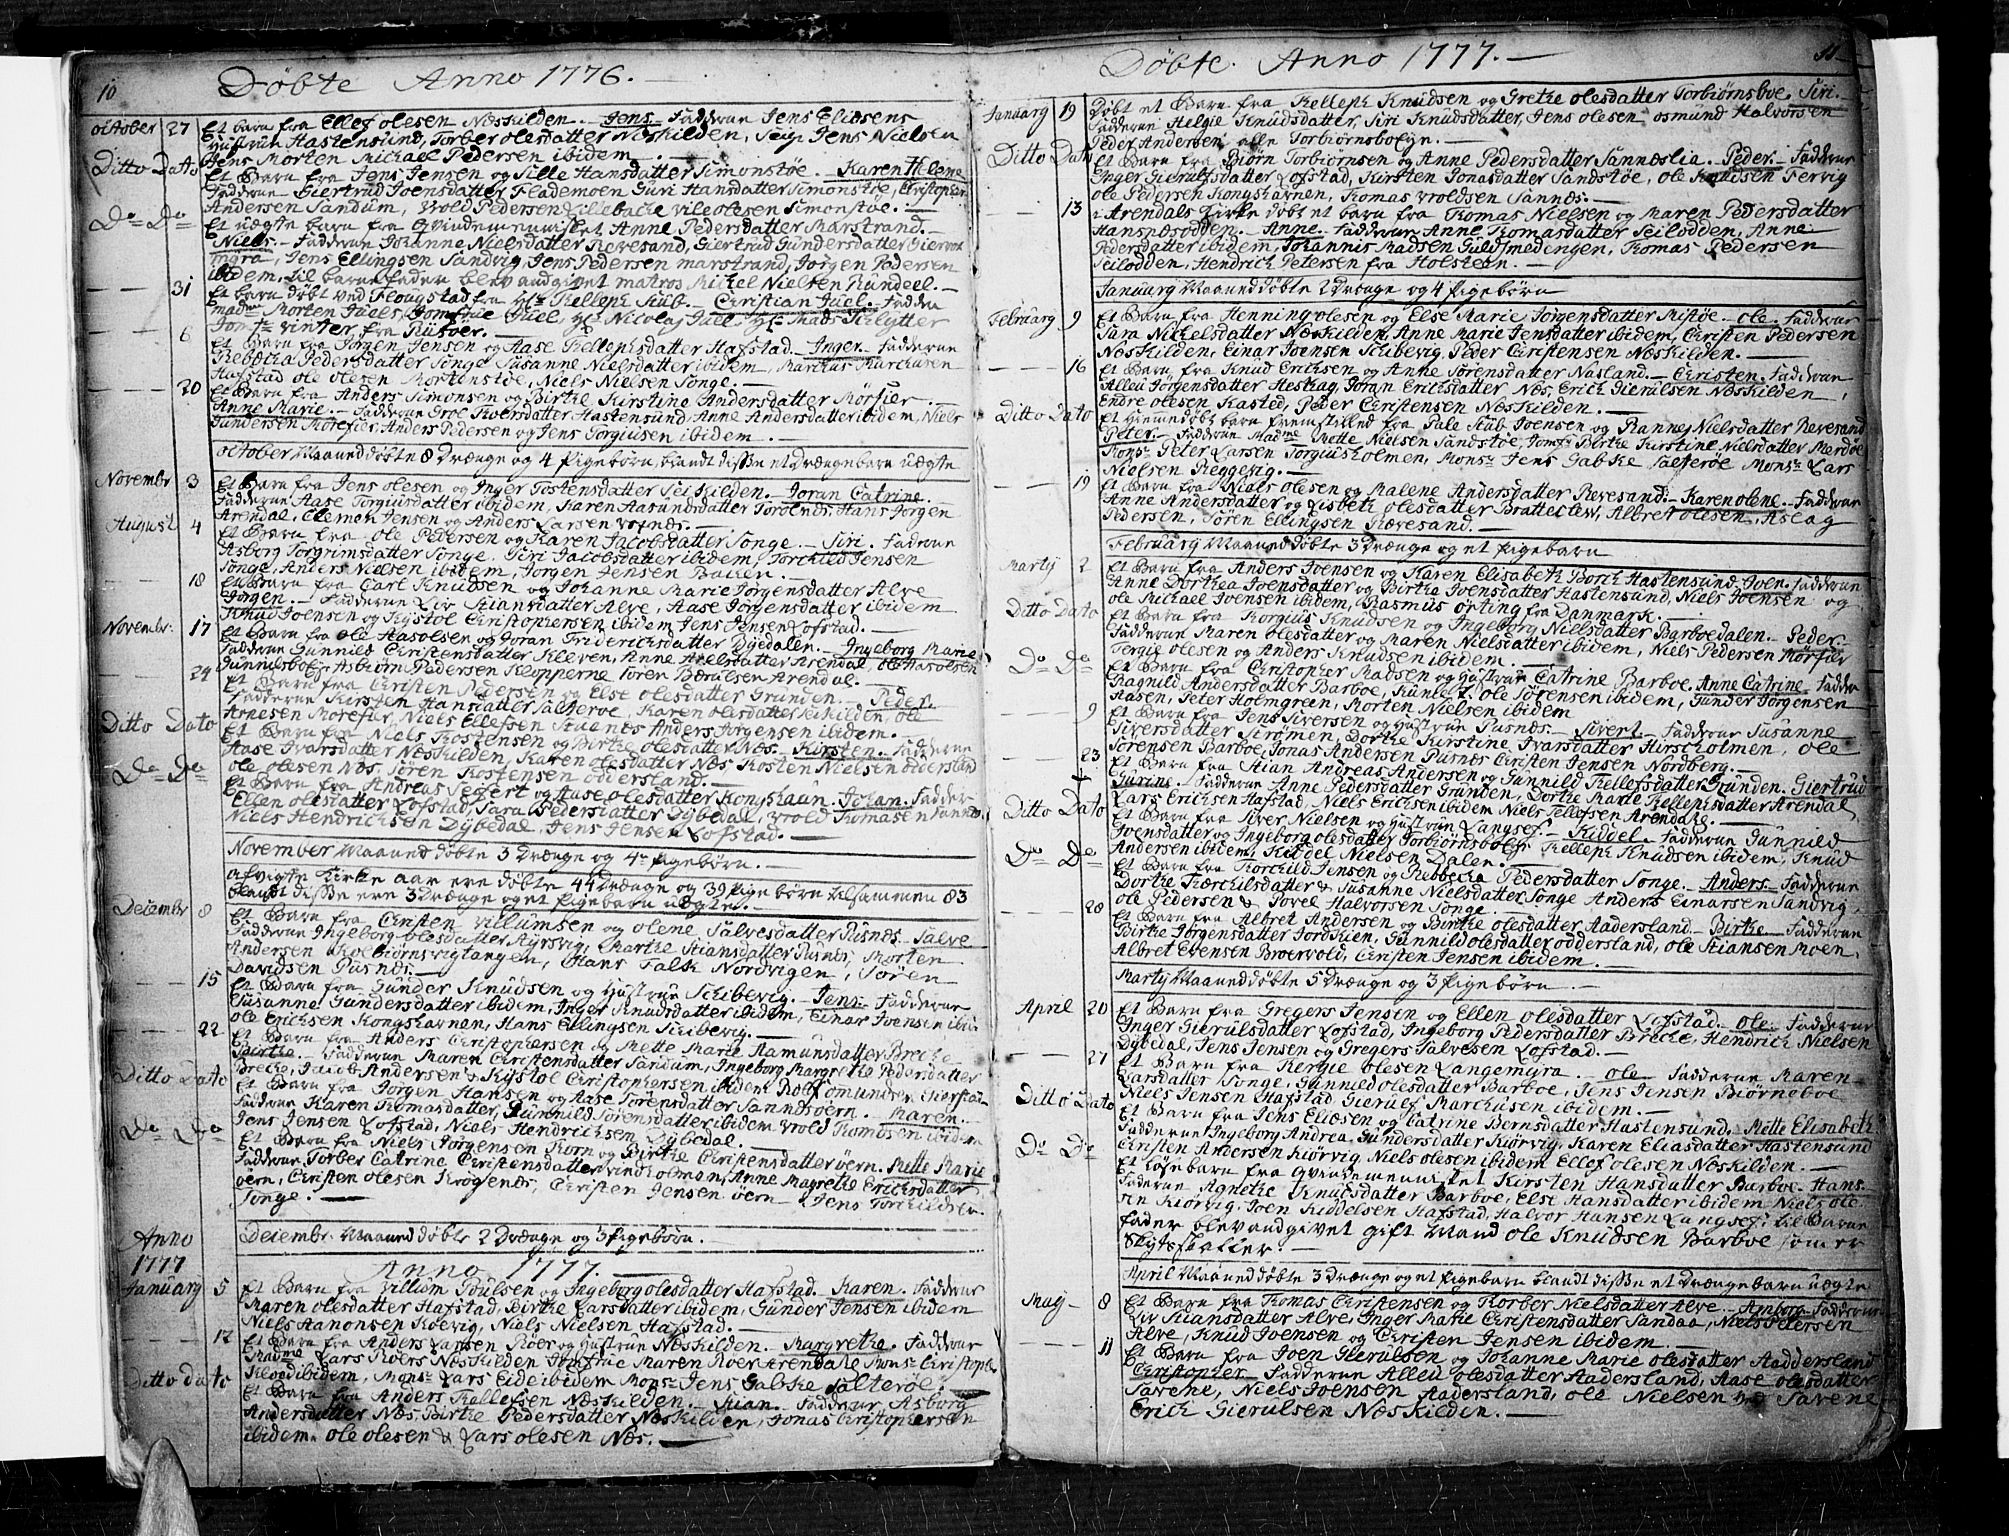 10
Døbte Anno 1776.
october 27 Et barn fra Ellef olesen Næskilden. Jens. Faddere Jens Eliesens
Hustrue Hastensund, Torber olesdatter Næskilden, Jens Nielsen
Jens Morten Michael Pedersen ibidem.
Ditto Dato Et Barn fra Jens Jensen og Sille Hansdatter Simonstøe. Karen Helene
Faddere Giertrud Joensdatter Flademoen Guri Hansdatter Simonstøe, Christopher
Andersen Sandum, Wrold Pedersen Lillebacke olesen Simonstøe.
Do Do Et uægte barn fra Qvindemennisket Anne Pedersdatter Marstrand.
Niels. Faddere Johanne Nielsdatter Revesand, Giertrud Gundersdatter
Jens Ellingsen Sandvig, Jens Pedersen marstrand, Jørgen Pedersen
ibidem, til barnefader blev angivet matros Michel Nielsen
31 Et barn døbt ved Flougstad fra Hr Kelleph Stub. Christian Juel. Fadde
madme Morten Juels, Jomfrue Juel, Hr Nicolaj Juel, Hr Mads
Jomfr vinter, fra Riisøer.
6 Et Barn fra Jørgen Jensen og Aase Kellephsdatter Hafstad. Inger. Faddere
Rebecka Pedersdatter Songe Susanne Nielsdatter ibidem, Marchus Marchusen
Hafstad ole olesen Mortenstøe, Niels Nielsen Songe.
20 Et Barn fra Anders Simonsen og Birthe Kirstine Andersdatter Mørfier.
Anne Marie. Faddere Hastensund Anne Andersdatter ibidem, Niels
Gundersen Morefier, Anders Pedersen og Jens Torgiusen ibidem.
october Maaned døbte 8 Drænge og 4 Pigebørn, blandt disse et drængebarn uægte
Novembr 3 Et Barn fra Jens olesen og Inger Tostensdatter Seiskilden. Joran Catrine.
Faddere Aase Torgiusdatter ibidem, Karen Aasundsdatter Torolnes Hans Jørgen
Arendal, Clemet Jensen og Anders Larsen
August 4 Et Barn fra ole Pedersen og Karen Jacobsdatter Songe. Siri. Faddere
Asborg Torgrimsdatter Songe, Siri Jacobsdatter ibidem, Torchild Jensen
Songe, Anders Nielsen ibidem, Jørgen Jensen Backen.
18 Et Barn fra Carl Knudsen og Johanne Marie Jørgensdatter Alve
Jørgen. Faddere Liv Stiansdatter Alve, Aase Jørgensdatter ibidem
Knud Joensen og Kystol Christophersen ibidem Jens Jensen Lofstad.
Novembr 17 Et Barn fra ole Aasolsen og Joran Friderichsdatter Dydalen. Ingeborg Marie
Faddere Gunnild Christensdatter Kleven, Anne Axelsdatter Arendal ole Aasolsen
Gunnilsboe, Asbiørn Pedersen Klopperne Søren Bærulsen Arendal.
24 Et Barn fra Christen Pedersen og Else olesdatter Grunden. Peder.
Faddere Kirsten Hansdatter Salterøe, Karen olesdatter Seiskilden, ole
Arnesen Morefier, Niels Ellefsen Stuenes Anders Jørgensen ibidem.
Ditto Dato Et Barn fra Niels Kostensen og Birthe olesdatter Næs. Kirsten. Faddere
Aase Ivarsdatter Næskilden, Karen olesdatter Næs Kosten Nielsen oddersland
ole olesen Næs, Søren Kostensen oddersland.
Do Do Et Barn fra Andreas Seffert og Aase olesdatter Kongshaun. Johan. Fadder
Ellen olesdatter Lofstad, Sara Pedersdatter Dybedal, Wrold Thomasen Sannes
Niels Hendrichsen Dybedal, Jens Jensen Lofstad.
November Maaned døbte 3 Drænge og 4 Pigebørn.
afvigte Kirke aar ere døbte 44 Drænge og 39 Pigebørn tilsammen 83
blandt disse ere 3 Drænge og et Pigebarn uægte.
Decembr 8 Et Barn fra Christen villumsen og olene Salvesdatter Pusnes. Salve
Faddere Ingeborg olesdatter Kyrsvig, Marthe Stiansdatter Pusnes, Morten
Andersen Kolbiørnsvigtangen, Hans Falck Nordvigen, Søren
Davidsen Pusnes.
15 Et Barn fra Gunder Knudsen og Hustrue Schibevig. Jens. Faddere
Susanne Gundersdatter ibidem, Inger Knudsdatter ibidem, Einar Joensen ibid
ole Erichsen Kongshavnen, Hans Ellingsen Schibevig.
22 Et Barn fra Anders Christophersen og Mette Marie Aamunsdatter Brecke
Birthe. Faddere Maren Christensdatter Sandum, Ingeborg Margrethe Pedersdatter
Brecke, Jacob Andersen & Kystol Christophersen ibidem Rolf omundsen
Ditto Dato Et Barn fra Jørgen Hansen og Aase Sørensdatter Sannesøern. Maren.
Faddere Karen Thomasdatter, Gunnild Sørensdatter ibidem Wrold Thomasen ibidem
Jens Jensen Lofstad, Niels Hendrichsen Dybedal.
Do Do Et Barn fra Niels Jørgensen Korn og Birthe Christensdatter øern. Mette Marie
Faddere Torber Catrine Christensdatter vindholman, Anne Magrethe Erichsdatter
øern, Christen olesen Krøgenes, Christen Jensen øern Jens Torchildsen
Songe.
Decembr. Maaned døbte 2 Drænge og 3 Pigebørn.
Anno
1777
Anno 1777.
January 5 Et Barn fra Villum Poulsen og Ingeborg olesdatter Hafstad. Karen. Faddere
Maren olesdatter Hafstad, Birthe Larsdatter ibidem, Gunder Jensen ibidem
Niels Aanonsen Koevig, Niels Nielsen Hafstad.
12 Et Barn fra Anders Larsen Roer og Hustrue Næskilden. Margrethe. Faddere
Madme Lars Roers Næskilden Jomfrue Maren Roer Arendahl Monsr Christopher
Kloed ibidem, Monsr Lars Eide ibidem Monsr Jens Gabche Salterøe.
Ditto dato Et Barn fra Anders Kellefsen Næskilden. Stian. Faddere Asborg
Andersdatter Næs, Birthe Pedersdatter Næskilden, Jonas Christophersen
ibidem. ole olesen & Lars olesen Næs.
11
Døbte. Anno 1777.
January 19 Døbt et Barn fra Kelleph Knudsen og Grethe olesdatter Torbiørnsboe, Siri.
Faddere Helgie Knudsdatter, Siri Knudsdatter, Jens olesen osmund Halvorsen
Peder Andersen alle Torbiørnsbolgn.
Ditto Dato Et Barn fra Biørn Torbiørnsen og Anne Pedersdatter Sannæslia. Peder. Faddere
Inger Gierulfsdatter Lofstad, Kirsten Jonasdatter Sandstøe, ole Knudsen Fervig
ole Pedersen Kongshavnen, Thomas Wroldsen Sannes.
13 i Arendals Kirke døbt et barn fra Thomas Nielsen og Maren Pedersdatter
Hansnæsodden. Anne. Faddere Anne Thomasdatter Seilodden, Anne
Pedersdatter ibidem, Johannis Madsen Guldsmedengen, Thomas Pedersen
Seilodden, Hendrich Petersen fra Holsteen.
January Maaned døbte 2 Drænge og 4 Pigebørn
February 9 Et Barn fra Henning olesen og Else Marie Jørgensdatter Mistøe. ole. Faddere
Sara Nichelsdatter Næskilden, Anne Marie Jensdatter ibidem, Christen Pedersen
Næskilden, Einar Joensen Schibevig, Peder Christensen Næskilden.
16 Et Barn fra Knud Erichsen og Anne Sørensdatter Næsland. Christen. Faddere
Alleu Jørgensdatter Heskag, Joran Erichsdatter Næs, Erich Gierulsen Næskilden,
Endre olesen Kasted, Peder Christensen Næskilden.
Ditto Dato Et Hiemmedøbt barn fremstilled fra Pale Stub Joensen og Ranney Nielsdatter Revesand
Peter. Faddere Madme Mette Nielsen Sandstøe, Jomfr Birthe Kirstine Nielsdatter Merdøe
Monsr Peter Larsen Torgiusholmen, Monsr Jens Gabche Salterøe Monsr Lars
Nielsen Reggevig.
19 Et Barn fra Niels olesen og Malene Andersdatter Revesand. Karen olene. Faddere
Anne Andersdatter og Lisbeth olesdatter Brattecleu, Albret olesen, Aslag
Pedersen, Søren Ellingsen Revesand.
February Maaned døbte 3 Drænge og et Pigebarn
Martij 2 Et Barn fra Anders Joensen og Karen Elisabeth Borch Hastensund Joen. Faddere
Anne Dorthea Joensdatter og Birthe Joensdatter Hastensund, Niels Joensen og
ole Michael Joensen ibidem, Rasmus Orting fra Danmark.
Ditto Dato Et Barn fra Torgius Knudsen og Ingeborg Nielsdatter Barboedalen. Peder.
Faddere Maren olesdatter og Maren Nielsdatter ibidem, Niels Pedersen Mørfier
Tergie olesen og Anders Knudsen ibidem.
Do Do Et Barn fra Christopher Madsen og Hustrue Catrine Barboe. Anne Catrine. Fadde
Ragnild Andersdatter Barboe, ole Sørensen ibidem, Gunder Jørgensen
Aasen, Peter Holmgreen, Morten Nielsen ibidem
9 Et Barn fra Jens Siversen og Hustrue Pusnes. Sivert. Faddere Susanne
Siversdatter Strømen, Dorthe Kirstine Ivarsdatter Hirscholmen, ole
Sørensen Barboe, Jonas Andersen Pusnes Christen Jensen Nordberg.
23 Et Barn fra Stian Andreas Andersen og Gunnild Kellefsdatter Grunden. Giertrud
Gurine. Faddere Anne Pedersdatter Grunden, Dorthe Marie Kellephsdatter Arendal
Lars Erichsen Hafstad, Niels Erichsen ibidem Niels Tellefsen Arendahl.
Ditto Dato Et Barn fra Siver Nielsen og Hustrue Langsef. Kiddel. Faddere Gunnild
Joensdatter og Ingeborg olesdatter Torbiørnsbolgn Kelleph Knudsen ibidem, Knud
Andersen ibidem, Kiddel Nielsen Dalen.
Do Do Et Barn fra Torchild Jensen og Rebbecka Pedersdatter Songe. Anders. Faddere
Dorthe Torchilsdatter & Susanne Nielsdatter Songe Anders Einarsen Sandvig
ole Pedersen & Tovel Halvorsen Songe.
28 Et Barn fra Albret Andersen og Birthe olesdatter Aadersland. Birthe. Faddere
Birthe Jørgensdatter Jordkien, Gunnild olesdatter oddersland, ole Stiansen Moen
Albret Evensen Broervold, Christen Jensen ibidem.
Martij Maaned døbte 5 Drænge og 3 Pigebørn.
April 20 Et Barn fra Gregers Jensen og Ellen olesdatter Lofstad. ole. Faddere
Inger Gierulsdatter Lofstad, Ingeborg Pedersdatter Brecke, Hendrich Nielsen
Dybedal, Jens Jensen og Gregers Salvesen Lofstad.
27 Et Barn fra Tergie olesen Langemyra. ole. Faddere Maren
Larsdatter Songe, Gunnild olesdatter Barboe, Jens Jensen Biørneboe
Niels Jensen Hafstad Gierulf Marchusen ibidem.
Ditto Dato Et Barn fra Jens Eliesen og Catrine Berntsdatter Hastensund. Mette Elisabeth
Faddere Ingeborg Andrea Gundersdatter Kiørvig, Karen Eliasdatter Hastensund
Christen Andersen Kiørvig Niels olesen ibidem Ellef olesen Næskilden.
Do Do Et løsebarn fra Qvindemennisket Kirsten Hansdatter Barboe. Hans.
Faddere Agnethe Knudsdatter Barboe, Else Hansdatter ibidem Niels ole
sen Kiørvig. Joen Kiddelsen Hafstad, Halvor Hansen Langsef, til Barne
fader blev angivet gift Mand ole Knudsen Barboe som er
April Maaned døbte 3 Drænge og et Pigebarn blandt disse et Drængebarn uægte
May 8 Et Barn fra Thomas Christensen og Torber Nielsdatter Alve. Amborg. Faddere
Liv Stiansdatter Alve, Inger Marie Christensdatter Sandaa, Niels Petersen
Alve, Knud Joensen og Christen Jensen ibidem.
11 Et Barn fra Joen Gierulsen og Johanne Marie olesdatter Aaddersland
Christopher. Faddere Alleu olesdatter Aadersland, Aase olesdatter
Savene, Niels Joensen Aadersland, ole Nielsen Savene
Erich Gierulsen Næskilden.